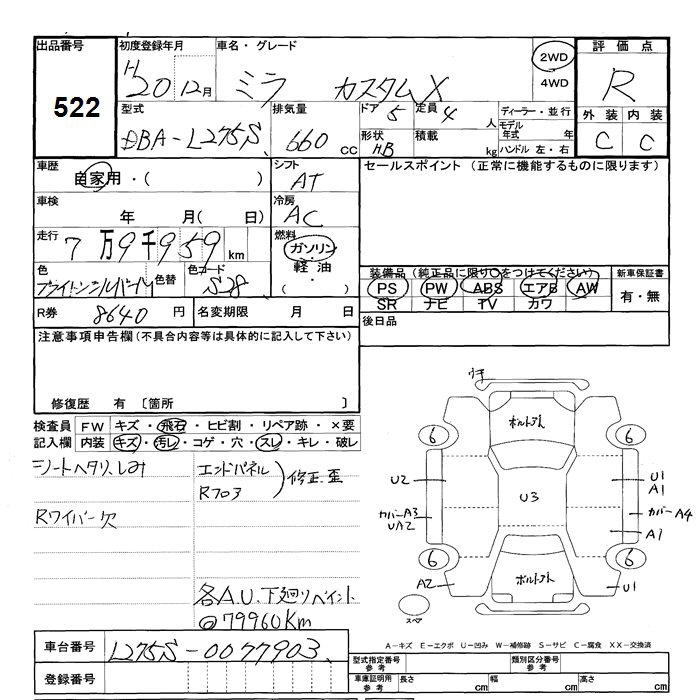 出品番号
522
初度登録年月
H20 12月
車名・グレード
ミラ カスタムX
2WD
4WD
評価点
R
外装 内装
C C
型式
DBA-L275S
排気量
660 CC
ドア 5
定員 4 人
形状 HB
積載 kg
ディーラー・並行
モデル年式 年
ハンドル 左・右
車歴
自家用・( )
シフト
AT
セールスポイント (正常に機能するものに限ります)
車検
年 月( 日)
冷房
AC
走行
7万9千959km
燃料
ガソリン・
軽油・
( )
色
ブライトシルバーM
色替
色コード
S28
装備品(純正品に限り○をつけてください)
PS PW ABS エアB AW
SR ナビ TV カワ
新車保証書
有・無
R券 8640円
名変期限 月 日
後日品
注意事項申告欄(不具合内容等は具体的に記入して下さい)
修復歴 有 〔箇所 〕
検査員記入欄
FW キズ・飛石・ヒビ割・リペア跡・×要
内装 キズ・汚レ・コゲ・穴・スレ・キレ・破レ
シートヘタリ、しみ
エンドパネル
R703
修正.歪
Rワイパー欠
各A.U.下廻りペイント
◎79960Km
ウキ
ボルトアト
6 6
U2
U3
U1
A1
カバーA3
UA2
カバーA4
A1
6 6
A2
ボルトアト
U1
スペア
車台番号 L275S-0077903
登録番号
A−キズ E−エクボ U−凹み W−補修跡 S−サビ C−腐食 XX−交換済
型式指定番号 参考
類別区分番号 参考
車庫証明用 参考
長さ cm
幅 cm
高さ cm